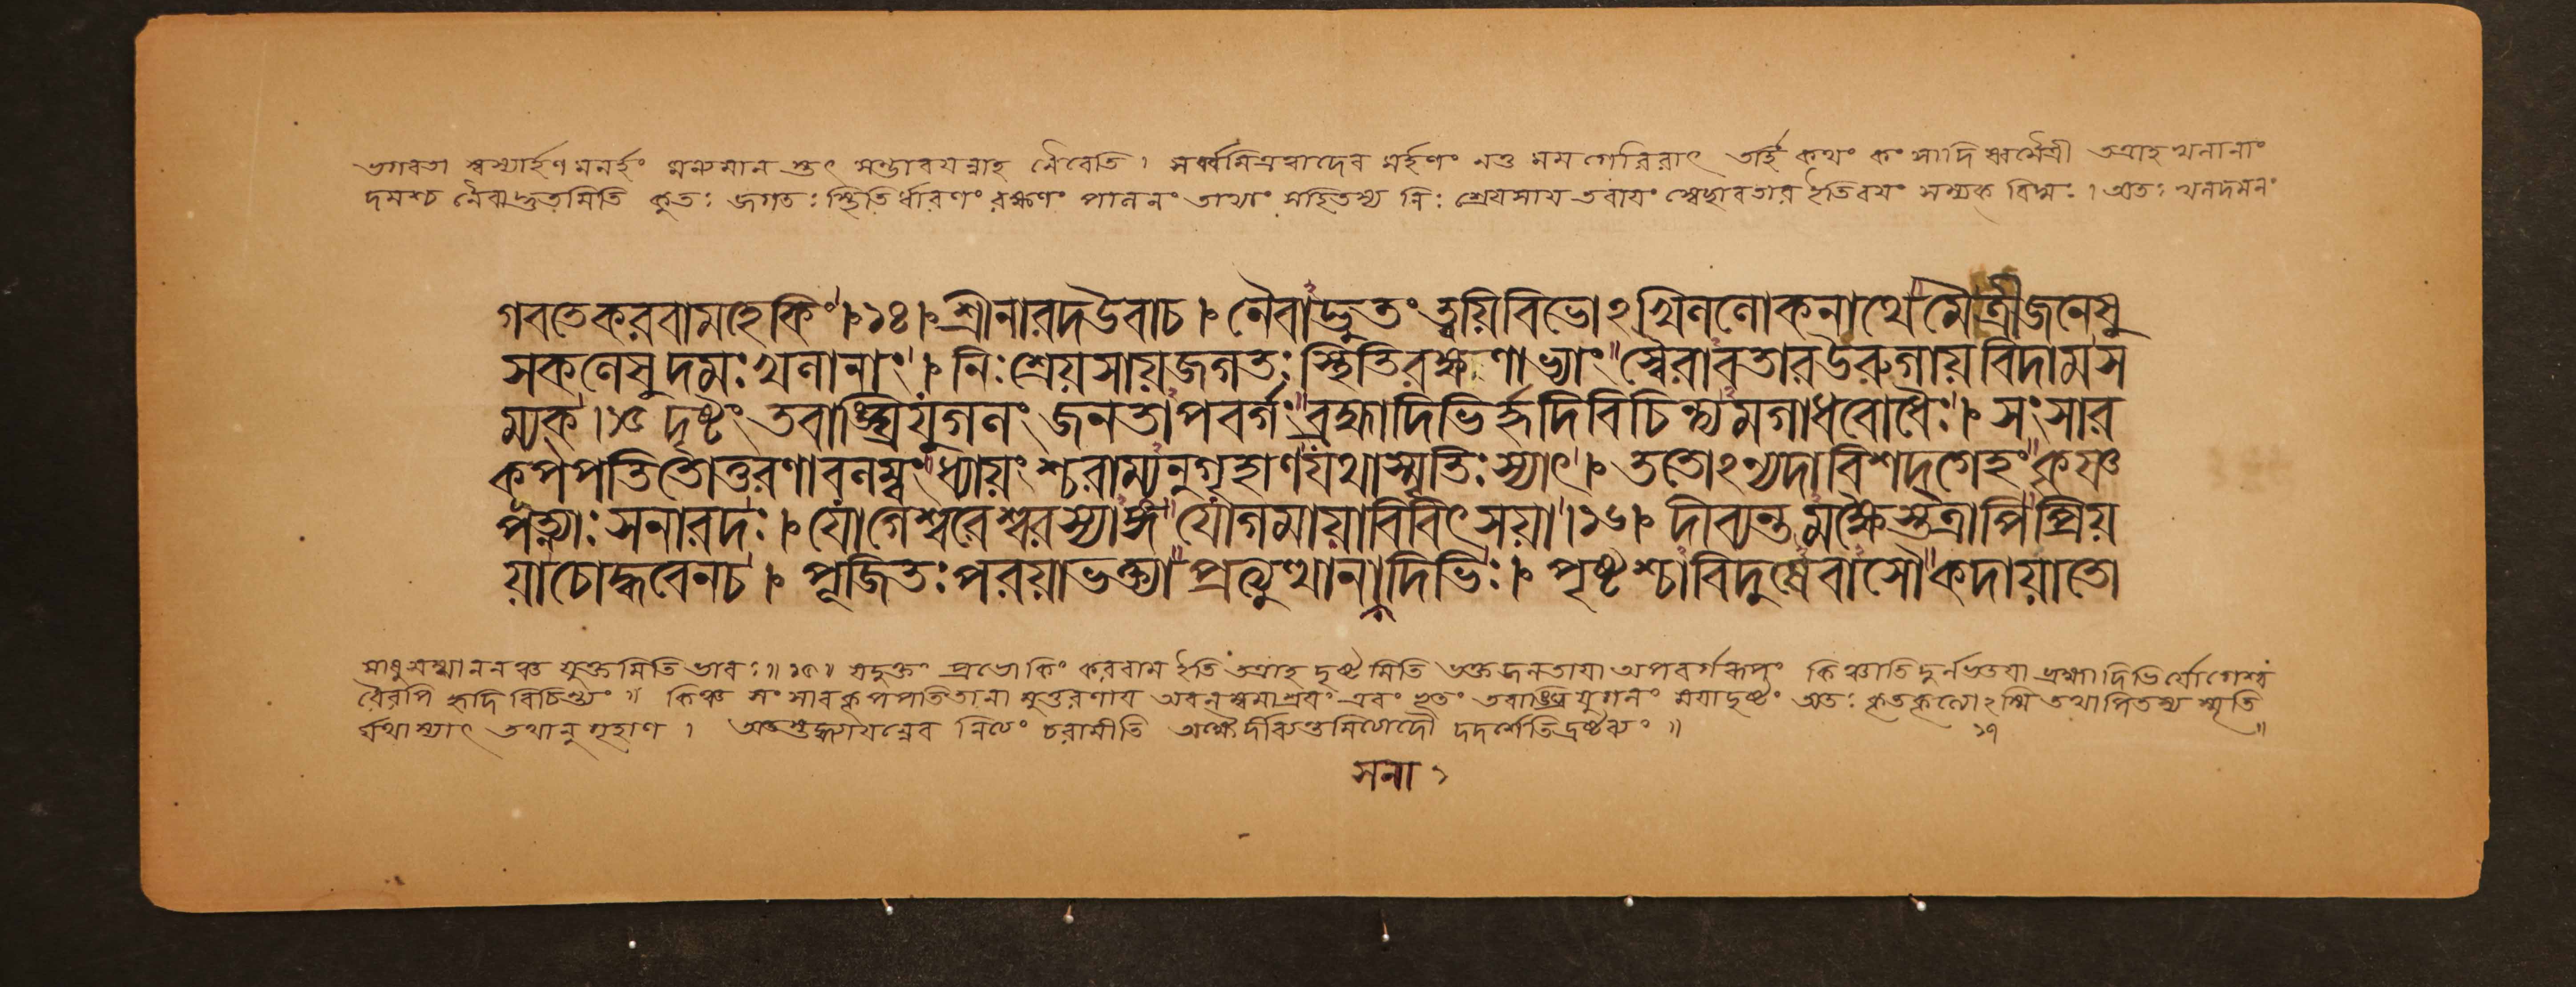 ভগবতা স্বস্যার্হণমনর্হং মন্যমান স্তৎ সম্ভাবয়ন্নাহ নৈবেতি। সর্ব্বমিত্রত্বাদেব মর্হণং নতু মমগৌরবাৎ তর্হি কথং কংসাদি ষ্বমৈত্রী তত্রাহ খলানাং
দমশ্চ নৈবাদ্ভুতমিতি কুতঃ জগতঃ স্থিতির্ধারণং রক্ষণং পালনং তাভ্যাং সহিতস্য নিঃ শ্রেয়সায় তবায়ং স্বেচ্ছাবতার ইতিবয়ং সম্যক বিদ্মঃ। অতঃ খলদমনং
গবতেকরবামহেকিং।১৪। শ্রীনারদউবাচ। নৈবাদ্ভুতং ত্বয়িবিভোঽখিললোকনাথে মৈত্রীজনেসু
সকলেসুদমঃখলানাং। নিঃশ্রেয়সায়জগতঃস্থিতিরক্ষণাভ্যাং স্বৈরাবতারউরুগায়বিদামস
ম্যক।১৫ দৃষ্টং তবাঙ্ঘ্রিযুগলং জনতাপবর্গং ব্রহ্মাদিভির্হৃদিবিচিন্ত্যমগাধবোধৈঃ। সংসার
কূপপতিতোত্তরণাবলম্বং ধ্যায়ংশ্চরাম্যনুগৃহাণযথাস্মৃতিঃস্যাৎ। ততোঽন্যদাবিশদ্গেহং কৃষ্ণ
পত্ন্যাঃসনারদঃ। যোগেশ্বরেশ্বরস্যাঙ্গ যোগমায়াবিবিৎসয়া।১৬। দীব্যন্তমক্ষৈস্তত্রাপি প্রিয়
য়াচোদ্ধবেনচ। পূজিতঃপরয়াভক্ত্যা প্রত্যুত্থানাদিভিঃ। পৃষ্টশ্চাবিদুষেবাসৌ কদায়াতো
সাধুসম্মাননঞ্চ যুক্তমিতি ভাবঃ॥১৫॥ যদুক্তং প্রভো কিং করবাম ইতি তত্রাহ দৃষ্টমিতি ভক্তজনতায়া অপবর্গরূপং কিঞ্চাতিদুর্লভতয়া ব্রহ্মাদিভির্যোগেশ্ব
রৈরপি হৃদি বিচিন্ত্যং॥ কিঞ্চ সংসারকূপপতিতানা মুত্তরণায় অবলম্বমাশ্রয়ং এবং ভূতং তবাঙ্ঘ্রিযুগলং ময়াদৃষ্টং অতঃ কৃতকৃত্যোঽস্মি তথাপিতস্য স্মৃতি
র্যথাস্যাৎ তথানুগৃহাণ। চরামীতি দদর্শেতিদ্রষ্টব্যং॥ ১৭ ॥
সনা ১